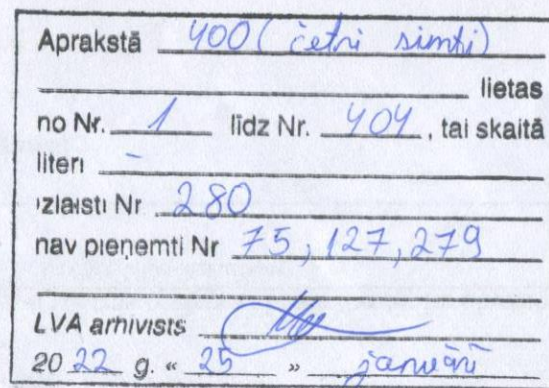 Aprakstā 400 (četri simti)
lietas
no Nr. 1 līdz Nr. 404, tai skaitā
literi -
izlaisti Nr 280
nav pieņemti Nr 75, 127, 279
LVA arhivists
20 22 g. « 25 » janvāri